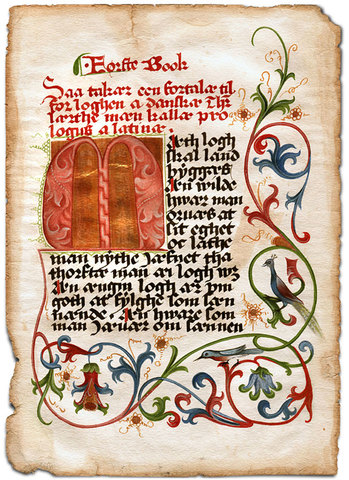 Eorste Book
Saa takær een fortalæ til
for loghen a danskæ Thr
særthe mæn kallæ pro
logus a latinæ.
Mæth logh
skal land
byggæs
Æn wilde
hwar man
oruæs at
sit eghet
oc lathe
man nythe jæfnet tha
thorftæ man æi logh wz
Æn ængin logh ær ym
goth at fylghe som sæn
nænde. Æn hware som
man æuær om sannen